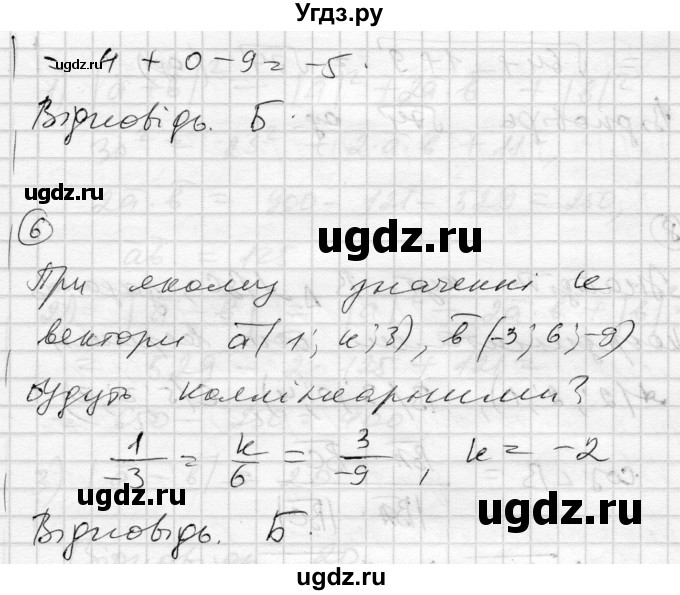 Угдз.ру
= 4 + 0 - 9 = -5.
Відповідь. Б.
6
При якому значенні k
вектори a(1; k; 3), b(-3; 6; -9)
будуть колінеарними?
1/-3 = k/6 = 3/-9, k = -2
Відповідь. Б.
ugdz.ru
ugdz.ru
ugdz.ru
ugdz.ru
ugdz.ru
ugdz.ru
ugdz.ru